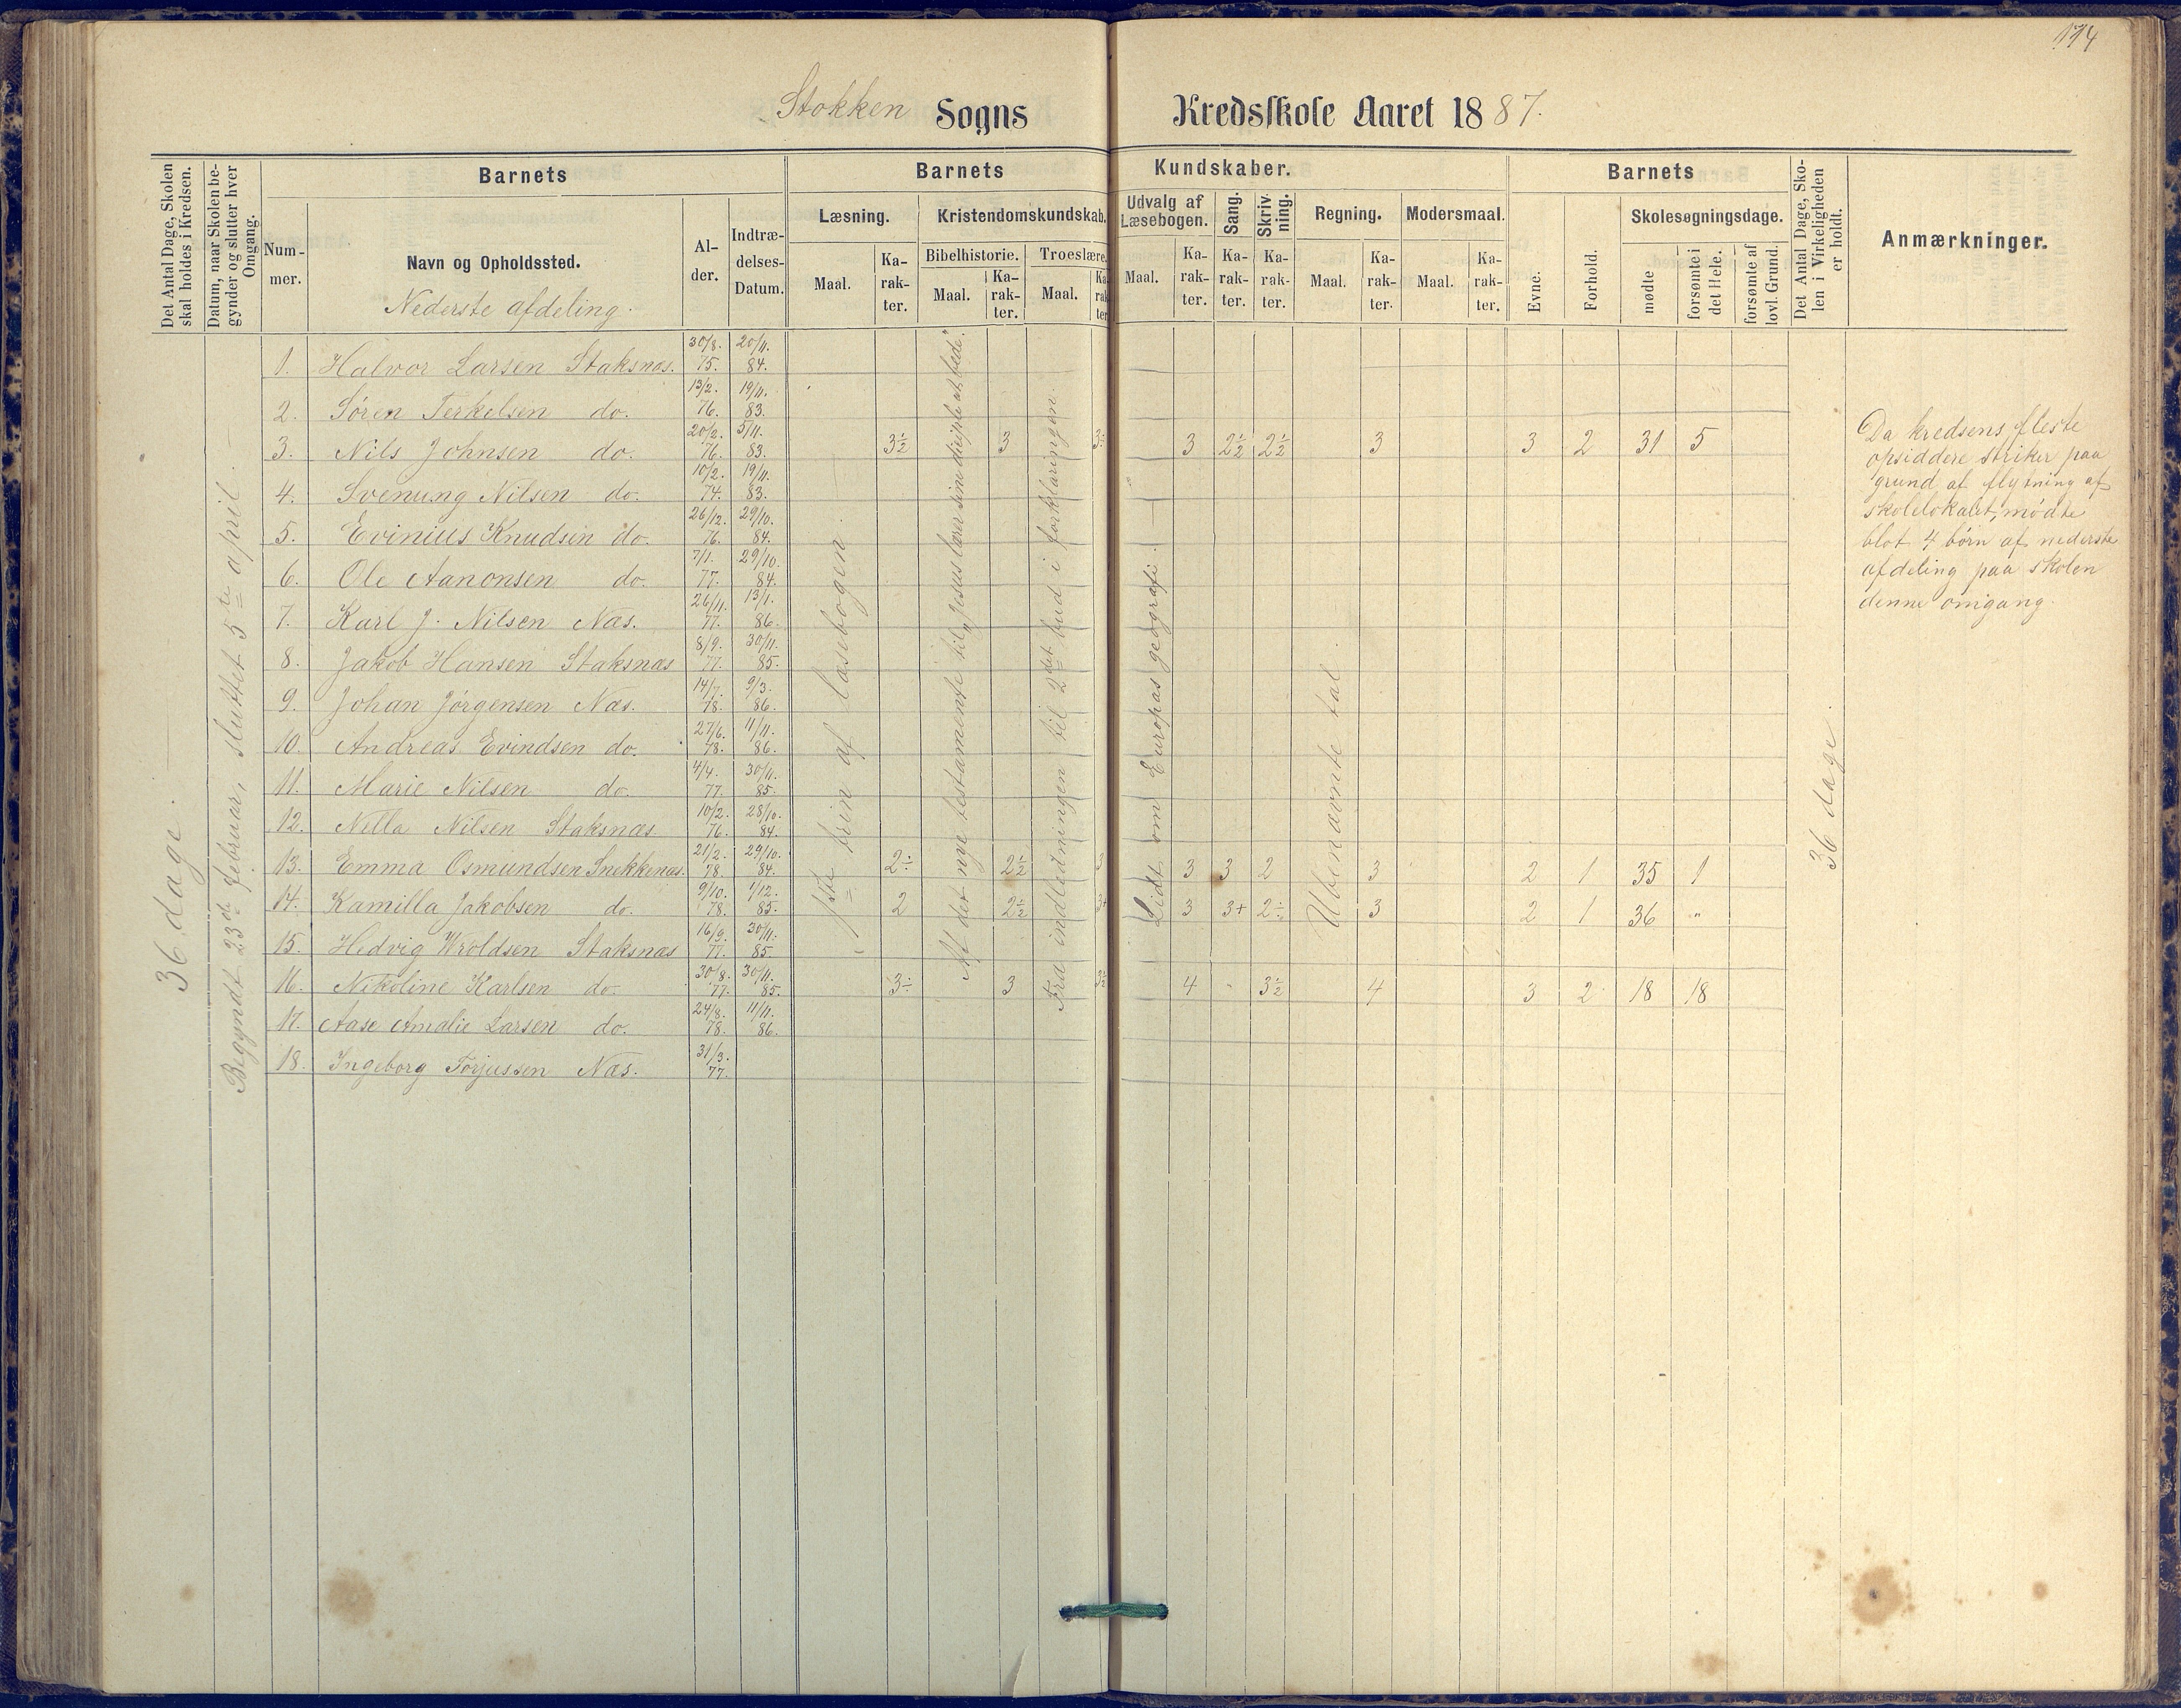 174
Stokken Sogns Kredsskole Aaret 1887.
Det Antal Dage, Skolen skal holdes i Kredsen.
Datum, naar Skolen begynder og slutter hver Omgang.
Barnets
Nummer.
Navn og Opholdssted.
Nederste afdeling.
Alder.
Indtrædelses-Datum.
Barnets Kundskaber.
Læsning.
Maal.
Karakter.
Kristendomskundskab.
Bibelhistorie.
Maal.
Karakter.
Troeslære.
Maal.
Karakter
Udvalg af Læsebogen.
Maal.
Karakter.
Sang.
Karakter.
Skrivning.
Karakter.
Regning.
Maal.
Karakter.
Modersmaal.
Maal.
Karakter.
Barnets
Evne.
Forhold.
Skolesøgningsdage.
mødte
forsømte i det Hele.
forsømte af lovl. Grund.
Det Antal Dage, Skolen i Virkeligheden er holdt.
Anmærkninger.
36 dage.
Begyndt 23de februar, sluttet 5te april.
1ste trin af læsebogen.
Af det nye testamente til „Jesus lærer sine disciple at bede".
Fra indledningen til 2det bud i forklaringen.
Lidt om Europas geografi.
Ubenævnte tal.
36 dage.
1. Halvor Larsen Staksnæs. 30/8. 75. 20/11. 84.
2. Søren Terkelsen do. 13/2. 76. 19/11. 83.
3. Nils Johnsen do. 20/2. 76. 5/11. 83. 3½ 3 3÷ 3 2½ 2½ 3 3 2 31 5
4. Svenung Nilsen do. 10/2. 74. 19/11. 83.
5. Evinius Knudsen do. 26/12. 76. 29/10. 84.
6. Ole Aanonsen do. 7/1. 77. 29/10. 84.
7. Karl J. Nilsen Næs. 26/11. 77. 13/1. 86.
8. Jakob Hansen Staksnæs 8/9. 77. 30/11. 85.
9. Johan Jørgensen Næs. 14/7. 78. 9/3. 86.
10. Andreas Evindsen do. 27/6. 78. 11/11. 86.
11. Marie Nilsen do. 4/4. 77. 30/11. 85.
12. Nella Nilsen Staksnæs 10/2. 76. 28/10. 84.
13. Emma Osmundsen Snekkenæs. 21/2. 78. 29/10. 84. 2÷ 2½ 3 3 3 2 3 2 1 35 1
14. Kamilla Jakobsen do. 9/10. 78. 1/12. 85. 2 2½ 3+ 3 3+ 2÷ 3 2 1 36 "
15. Hedvig Wroldsen Staksnæs 16/9. 77. 30/11. 85.
16. Nikoline Karlsen do. 30/8. 77. 30/11. 85. 3÷ 3 3½ 4 3½ 4 3 2 18 18
17. Aase Amalie Larsen do. 24/8. 78. 11/11. 86.
18. Ingeborg Torjussen Næs. 31/3. 77.
Da kredsens fleste
opsiddere striker paa
grund af flytning af
skolelokalet, mødte
blot 4 børn af nederste
afdeling paa skolen
denne omgang.